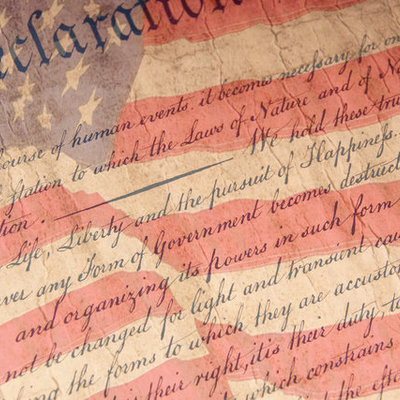 eclaration
course of human events. it becomes necessary for on
station to which the Laws of Nature and of Na
tion. We hold these tru
Life, Liberty and the pursuit of Happiness.
ver any Form of Government becomes destruct
and organizing its powers in such form
not be changed for light and transient cau
ing the forms to which they are accustom
their right, it is their duty, to
which constrains